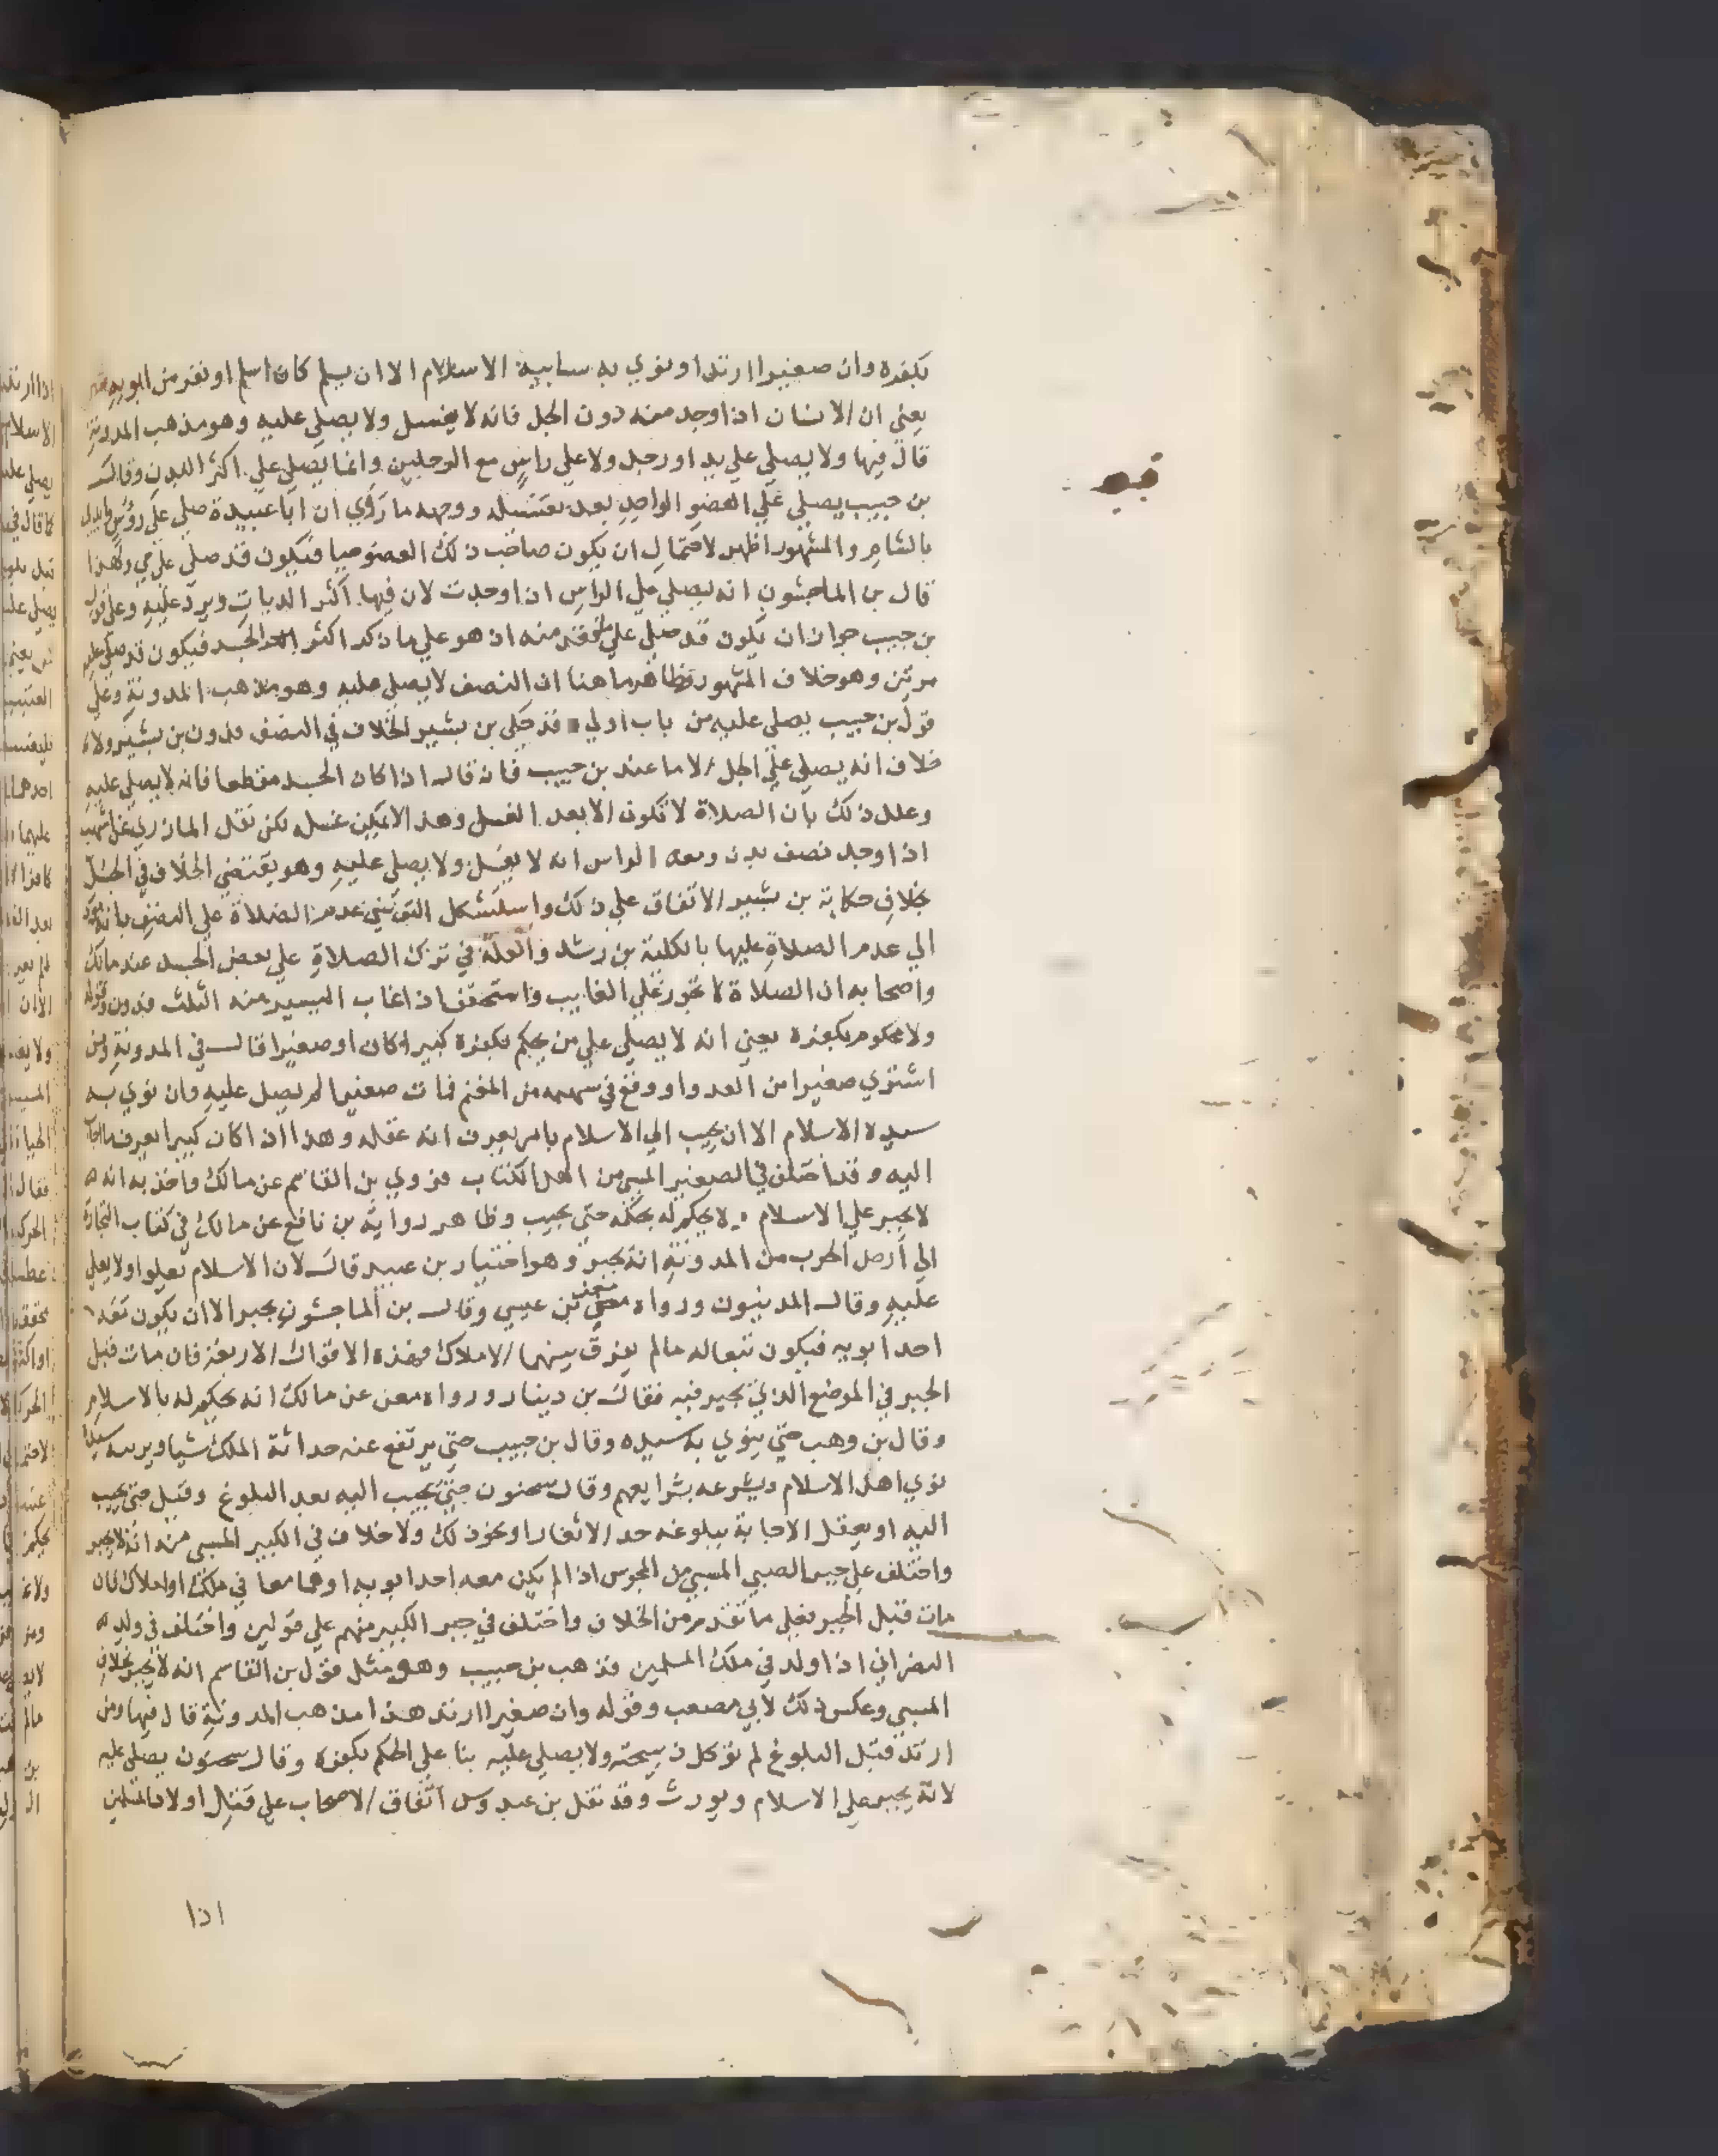 بكفره وان صغيرا ارتد او نوي به سابيه الاسلام الا ان يسلم كان اسلم او نفر من ابويه ش
يعني ان الانسان اذا وجد منه دون الجل فانه لا يغسل ولا يصلي عليه وهو مذهب المدونة
قال فيها ولا يصلي علي يد او رجل ولا علي راس مع الرجلين وانما يصلي علي اكثر البدن وقال
بن حبيب يصلي علي العضو الواحد بعد تغسله ووجهه ما روي ان ابا عبيدة صلي علي رؤس
بالشام والمشهور اظهر لاحتمال ان يكون صاحب ذلك العضو حيا فيكون قد صلي علي حي ولهذا
قال بن الماجشون انه يصلي علي الراس ان اوجدت لان فيها اكثر الديات ويرد عليه وعلي قول
بن حبيب جواز ان يكون قد صلي علي ما فقد منه ان هو علي ما ذكر اكثر الجسد فيكون قد صلي عليه
مرتين وهو خلاف المشهور فظاهر ما هنا ان النصف لا يصلي عليه وهو مذهب المدونة وعلي
قول بن حبيب يصلي عليه من باب اولي قد حكي بن بشير الخلاف في النصف فدون بن بشير ولا
خلاف انه يصلي علي الجل الا ما عند بن حبيب فانه قال اذا كان الجسد مقطعا فانه لا يصلي عليه
وعلل ذلك بان الصلاة لا تكون الا بعد الغسل وهذا لا يمكن غسله لكن نقل المازري عن اشهب
اذا وجد نصف بدن ومعه الراس انه لا يغسل ولا يصلي عليه وهو يقتضي الخلاف في الجل
بخلاف حكاية بن بشير الاتفاق علي ذلك واستشكل التونسي عدم الصلاة علي النصف بانه يودي
الي عدم الصلاة عليها بالكلية بن رشد والعلة في ترك الصلاة علي بعض الجسد عند مالك
واصحابه ان الصلاة لا تجوز علي الغايب واستحقف اذا غاب اليسير منه الثلث فدون وقوله
ولا محكوم بكفره يعني انه لا يصلي علي من يحكم بكفره كبيرا كان او صغيرا قال في المدونة ومن
اشتري صغيرا من العدو او وقع في سهمه من المغنم فمات صغيرا لم يصل عليه وان نوي به
سيده الاسلام الا ان يجيب الي الاسلام بامر يعرف انه عقله وهذا اذا كان كبيرا يعرف ما اجاب
اليه وقد اختلف في الصغير المسبي من اهل الكتاب فروي بن القاسم عن مالك واخذ به انه
لا يجبر علي الاسلام ولا يحكم له بحكمه حتي يجيب وظاهر رواية بن نافع عن مالك في كتاب التجارة
الي ارض الحرب من المدونة انه يجبر وهو اختيار بن عبيد قال لان الاسلام يعلوا ولا يعلي
عليه وقال المدنيون ورواه معن بن عيسي وقال بن الماجشون يجبر الا ان يكون معه
احد ابويه فيكون تبعا له ما لم يفرق بينهما الاملاك فهذه الاقوال الاربعة فان مات قبل
الجبر في الموضع الذي يجبر فيه فقال بن دينار ورواه معن عن مالك انه يحكم له بالاسلام
وقال بن وهب حتي ينوي به سيده وقال بن حبيب حتي يرتفع عنه حداثة الملك شيا ويربيه سيده
نوي اهل الاسلام ويشرعه بشرايعهم وقال سحنون حتي يجيب اليه بعد البلوغ وقيل حتي يجيب
اليه او يعقل الاجابة ببلوغه حد الاثغار او نحو ذلك ولا خلاف في الكبير المسبي منه انه لا يجبر
واختلف علي جبر الصبي المسبي من المجوس اذا لم يكن معه احد ابويه او هما معا في ملك او املاك فان
مات قبل الجبر فعلي ما تقدم من الخلاف واختلف في جبر الكبير منهم علي قولين واختلف في ولد
النصراني اذا ولد في ملك المسلمين فذهب بن حبيب وهو مثل قول بن القاسم انه لا يجبر بخلاف
المسبي وعكس ذلك لابي مصعب وقوله وان صغيرا ارتد هذا مذهب المدونة قال فيها ومن
ارتد قبل البلوغ لم توكل ذبيحته ولا يصلي عليه بنا علي الحكم بكفره وقال سحنون يصلي عليه
لانه يجبر علي الاسلام ويورث وقد نقل بن عبدوس اتفاق الاصحاب علي قتل اولاد المسلمين
اذا